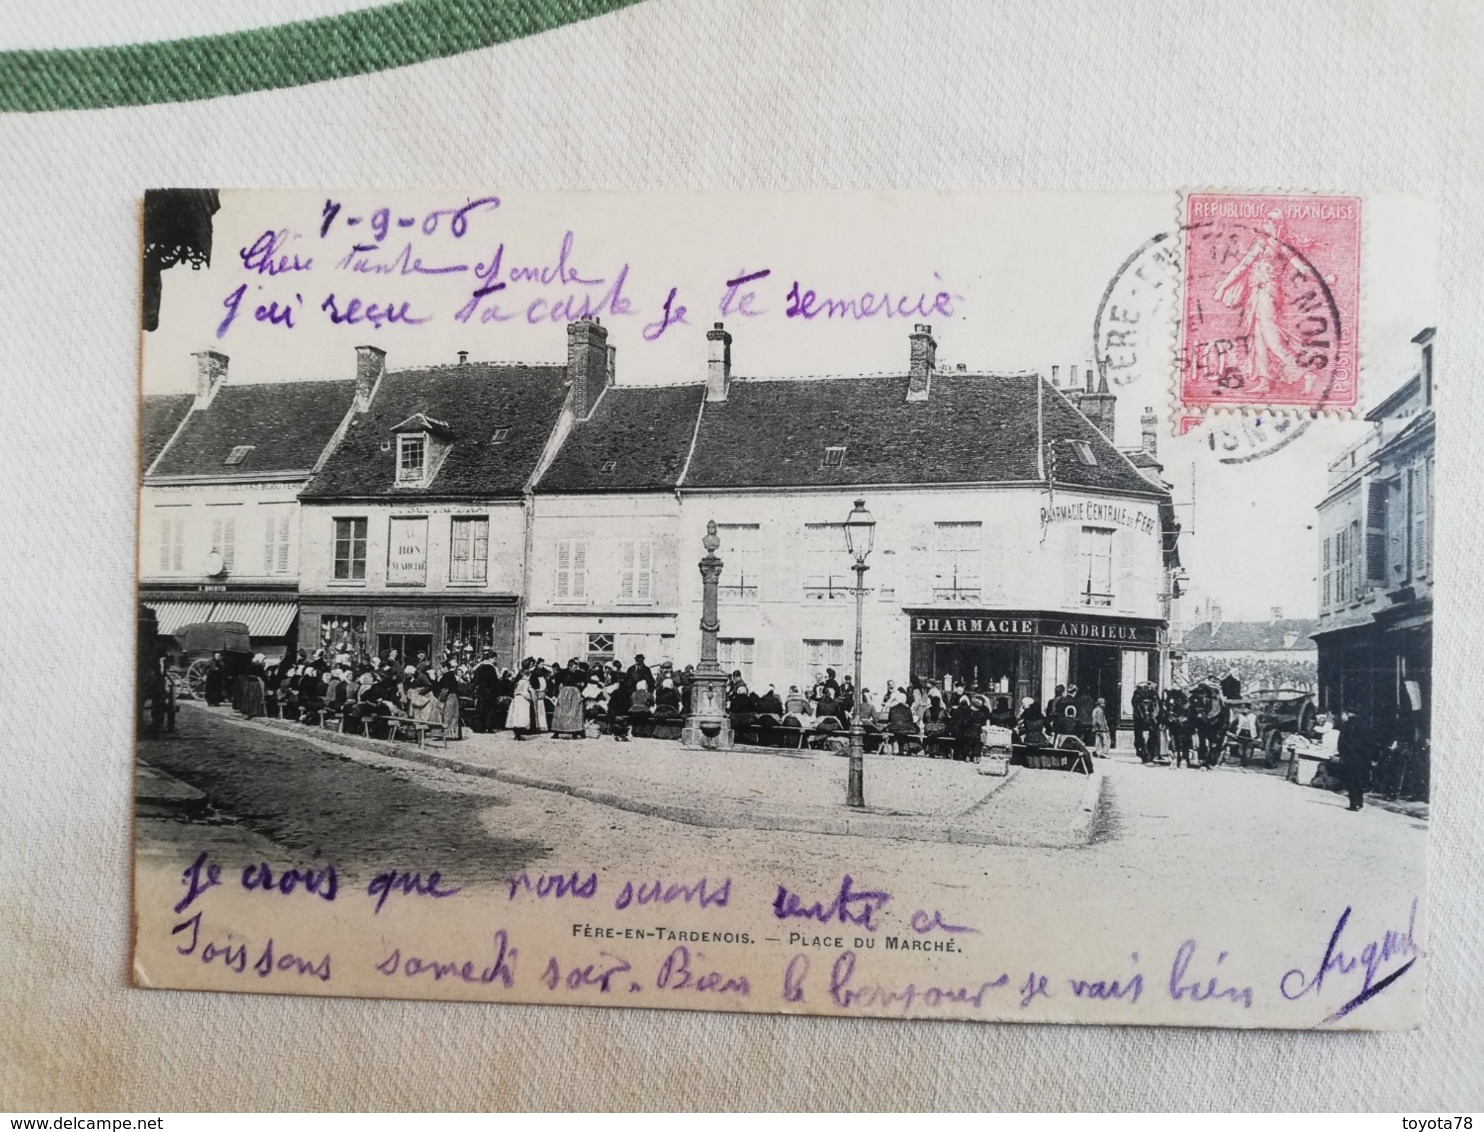 7-9-06
Chère tante et oncle
J'ai reçu ta carte je te remercie
REPUBLIQUE FRANÇAISE
POSTES
10
FERE-EN-TARDENOIS
SEPT
06
PHARMACIE CENTRALE DE FERE
AU
BON
MARCHÉ
PHARMACIE ANDRIEUX
Je crois que nous serons rentré a
FÈRE-EN-TARDENOIS. — PLACE DU MARCHÉ.
Soissons samedi soir. Bien le bonjour je vais bien
toyota78